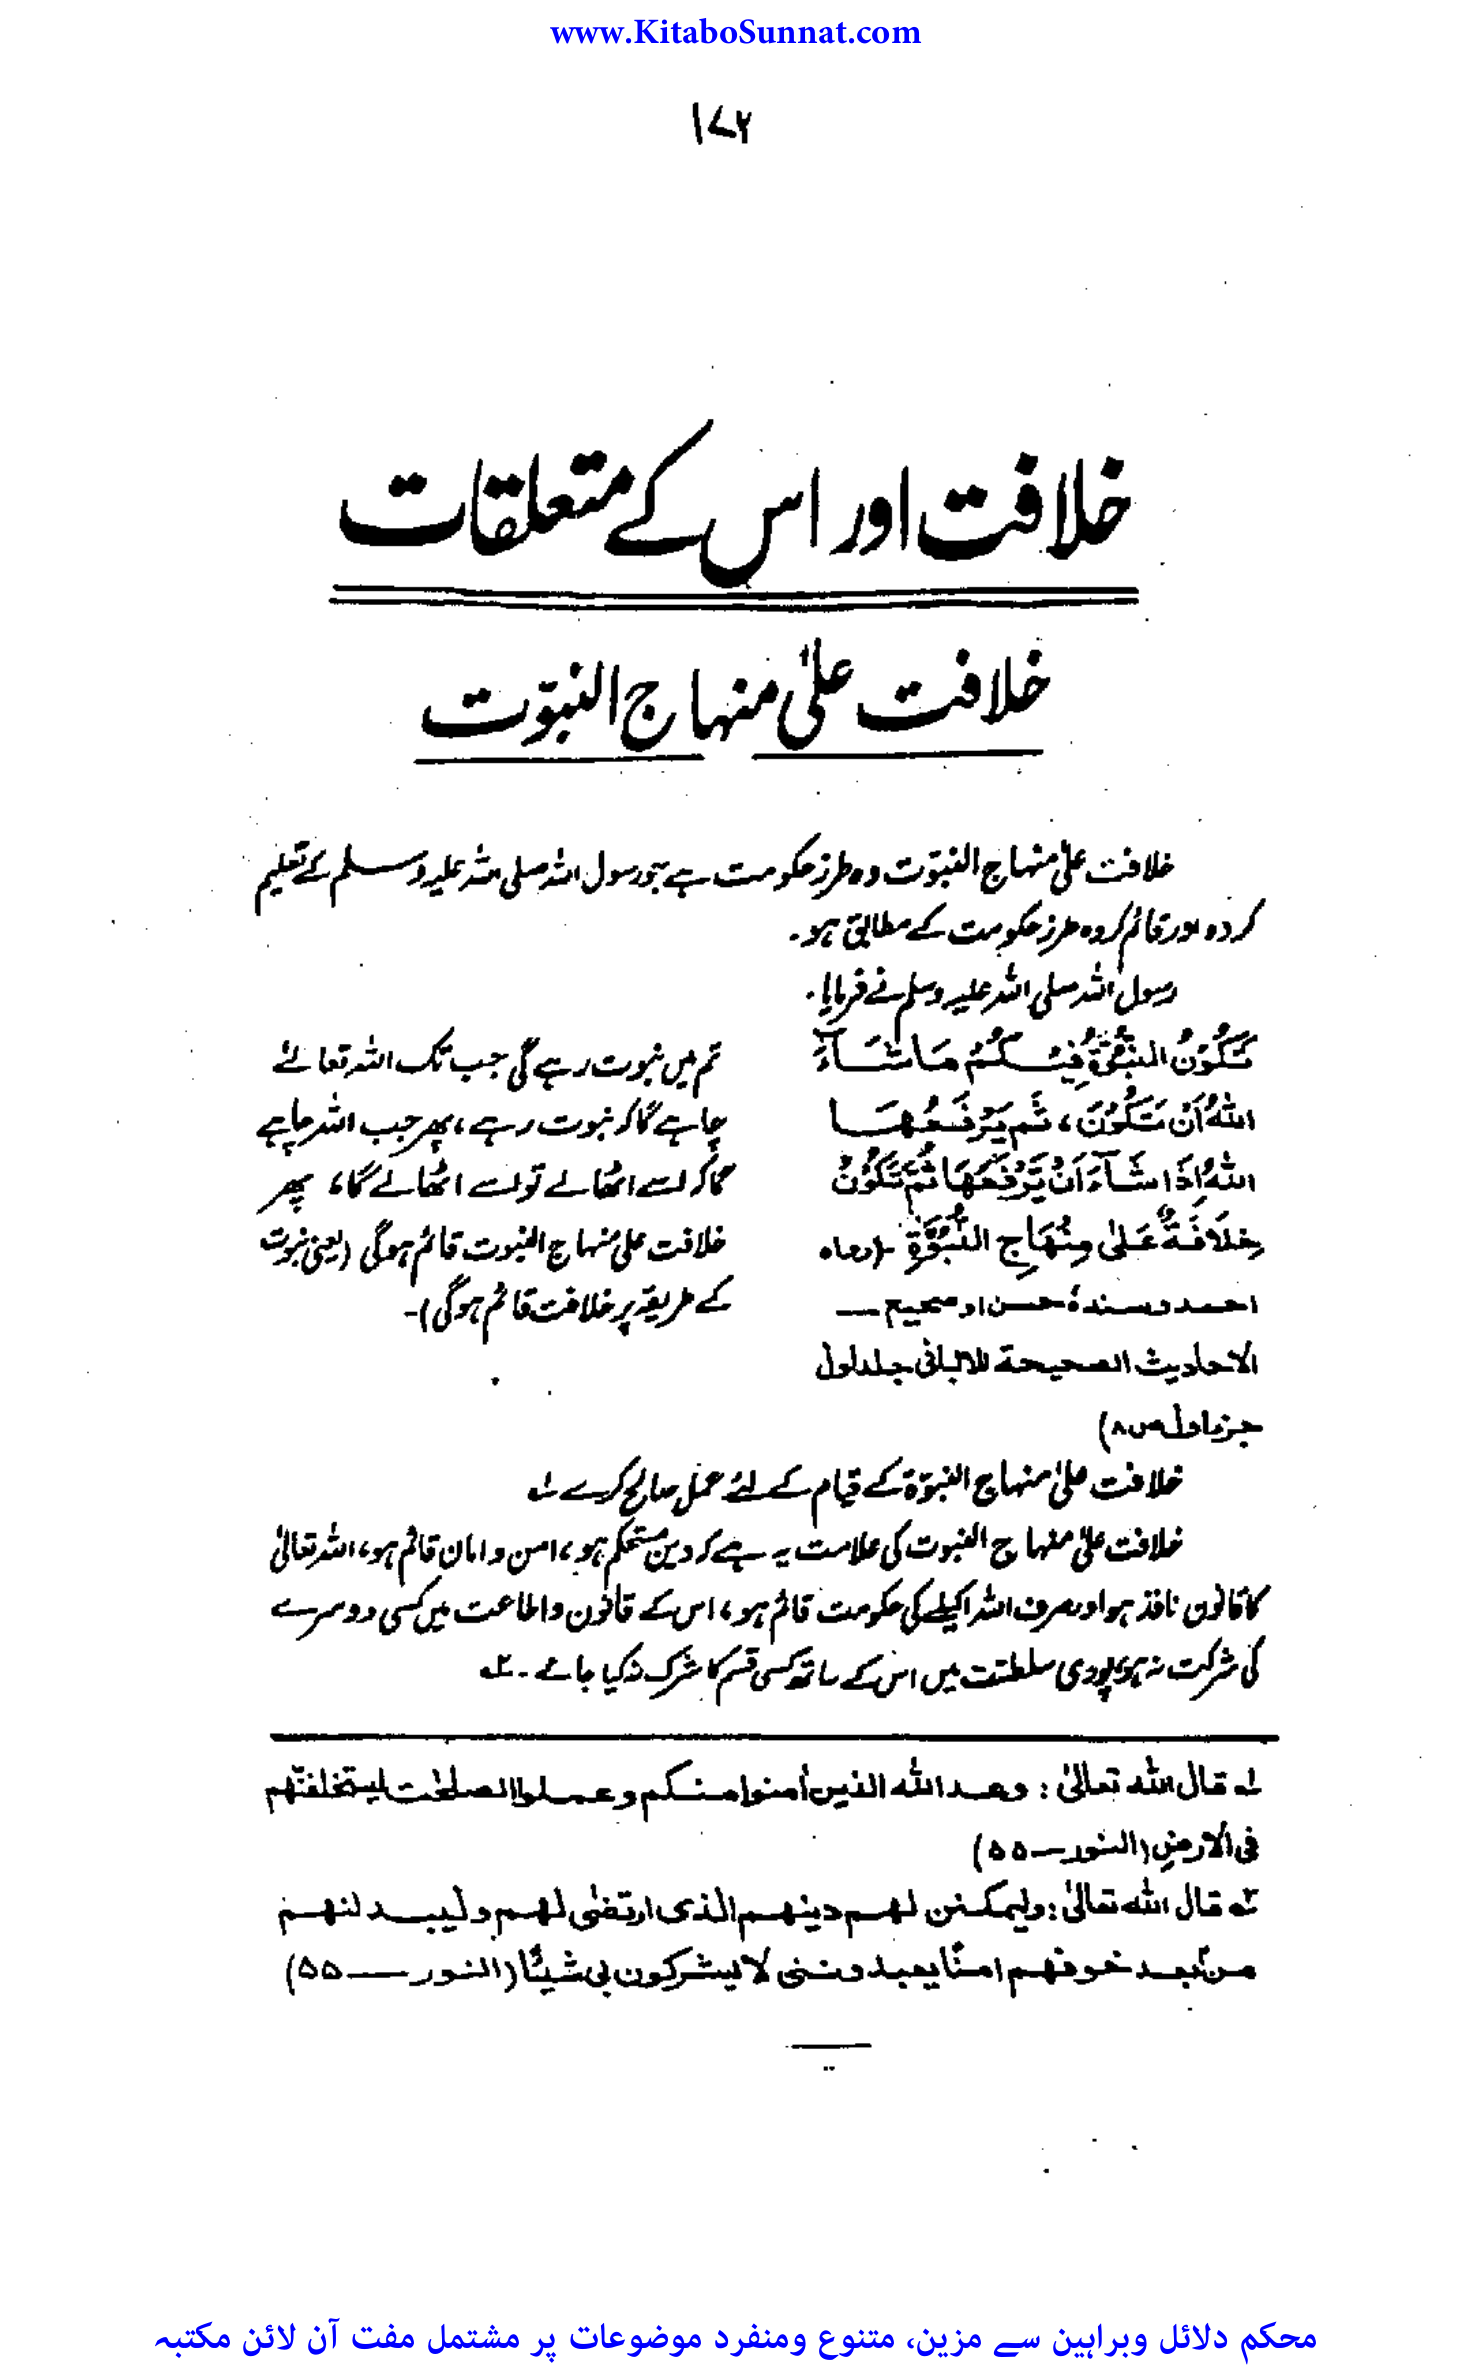 www.KitaboSunnat.com
۱۷۶
خلافت اور اس کے متعلقات
خلافت علیٰ منہاج النبوّت
خلافت علیٰ منہاج النبوّت وہ طرز حکومت ہے جو رسول اللہ صلی اللہ علیہ وسلم کے تعلیم
کردہ اور قائم کردہ طرز حکومت کے مطابق ہو۔
رسول اللہ صلی اللہ علیہ وسلم نے فرمایا۔
تَكُوْنُ النُّبُوَّةُ فِيْكُمْ مَا شَآءَ
اللهُ اَنْ تَكُوْنَ، ثُم يَرْفَعُهَا
اللهُ اِذَا شَآءَ اَنْ يَّرْفَعَهَا ثُمَّ تَكُوْنُ
خِلَافَةٌ عَلىٰ مِنْهَاجِ النُّبُوَّةِ ۔(رواه
احمد وسندهٗ حسن او صحيح —
الاحاديث الصحيحة للالبانی جلد اول
جزء اول ص۸)
تم میں نبوت رہے گی جب تک اللہ تعالےٰ
چاہے گا کہ نبوت رہے، پھر جب اللہ چاہے
گا کہ اسے اٹھالے تو اسے اٹھالے گا، پھر
خلافت علی منہاج النبوت قائم ہوگی (یعنی نبوت
کے طریقہ پر خلافت قائم ہوگی)۔
خلافت علیٰ منہاج النبوّۃ کے قیام کے لئے عمل صالح کرے ۱ے
خلافت علیٰ منہاج النبوت کی علامت یہ ہے کہ دین مستحکم ہو، امن و امان قائم ہو، اللہ تعالیٰ
کا قانون نافذ ہو اور صرف اللہ اکیلے کی حکومت قائم ہو، اس کے قانون و اطاعت میں کسی دوسرے
کی شرکت نہ ہو، پوری سلطنت میں اس کے ساتھ کسی قسم کا شرک نہ کیا جائے ۔ ۲ے
۱ے قال الله تعالىٰ : وعد الله الذين اٰمنوا منكم وعملوا الصلحٰت ليستخلفنّهم
فى الارض (النور — ۵۵)
۲ے قال الله تعالىٰ : وليمكنن لهم دينهم الذى ارتضىٰ لهم وليبدلنهم
منۢ بعد خوفهم امنًا يعبدوننى لا يشركون بى شيئًا (النور — ۵۵)
محکم دلائل وبراہین سے مزین، متنوع ومنفرد موضوعات پر مشتمل مفت آن لائن مکتبہ